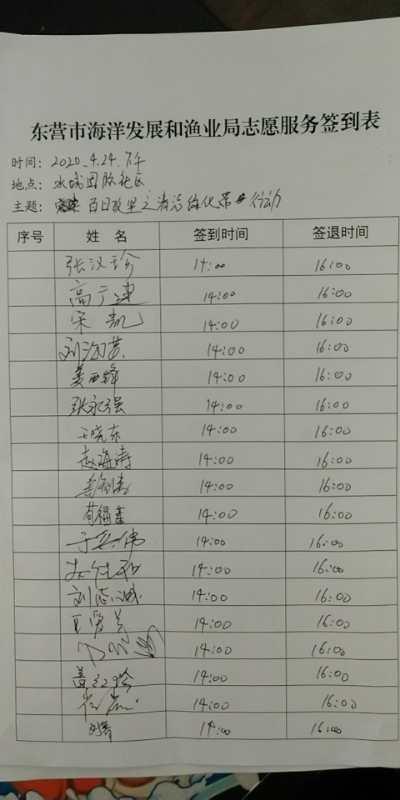 东营市海洋发展和渔业局志愿服务签到表
时间：2020.4.24.下午
地点：水城国际社区
主题：百日攻坚之清洁绿化带行动
序号 姓名 签到时间 签退时间
张汉珍 14:00 16:00
高广建 14:00 16:00
宋凯 14:00 16:00
刘 14:00 16:00
姜西锋 14:00 16:00
张永强 14:00 16:00
于晓东 14:00 16:00
赵海涛 14:00 16:00
14:00 16:00
14:00 16:00
于 伟 14:00 16:00
14:00 16:00
刘志诚 14:00 16:00
王爱美 14:00 16:00
14:00 16:00
14:00 16:00
14:00 16:00
14:00 16:00